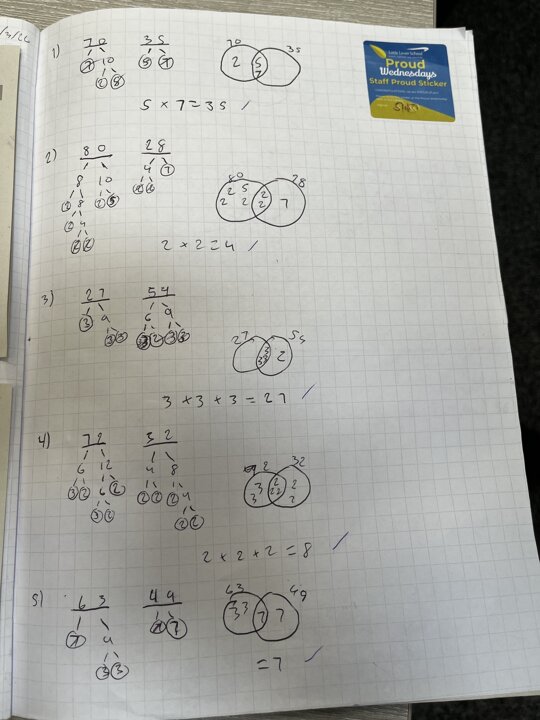 1/3/26
1) 70 35
7 10 5 7
2 5
70 35
2 5 7
5 × 7 = 35
Little Lever School
Proud
Wednesdays
Staff Proud Sticker
2) 80 28
8 10 4 7
2 8 2 5 2 2
2 4
2 2
80 28
2 5 2 2 2 2 7
2 × 2 = 4
3) 27 54
3 9 6 9
3 3 3 2 3 3
27 54
3 3 3 2
3 × 3 × 3 = 27
4) 72 32
6 12 4 8
3 2 6 2 2 2 2 4
3 2 2 2
72 32
3 3 2 2 2 2 2
2 × 2 × 2 = 8
5) 63 49
7 9 7 7
3 3
63 49
3 3 7 7
= 7